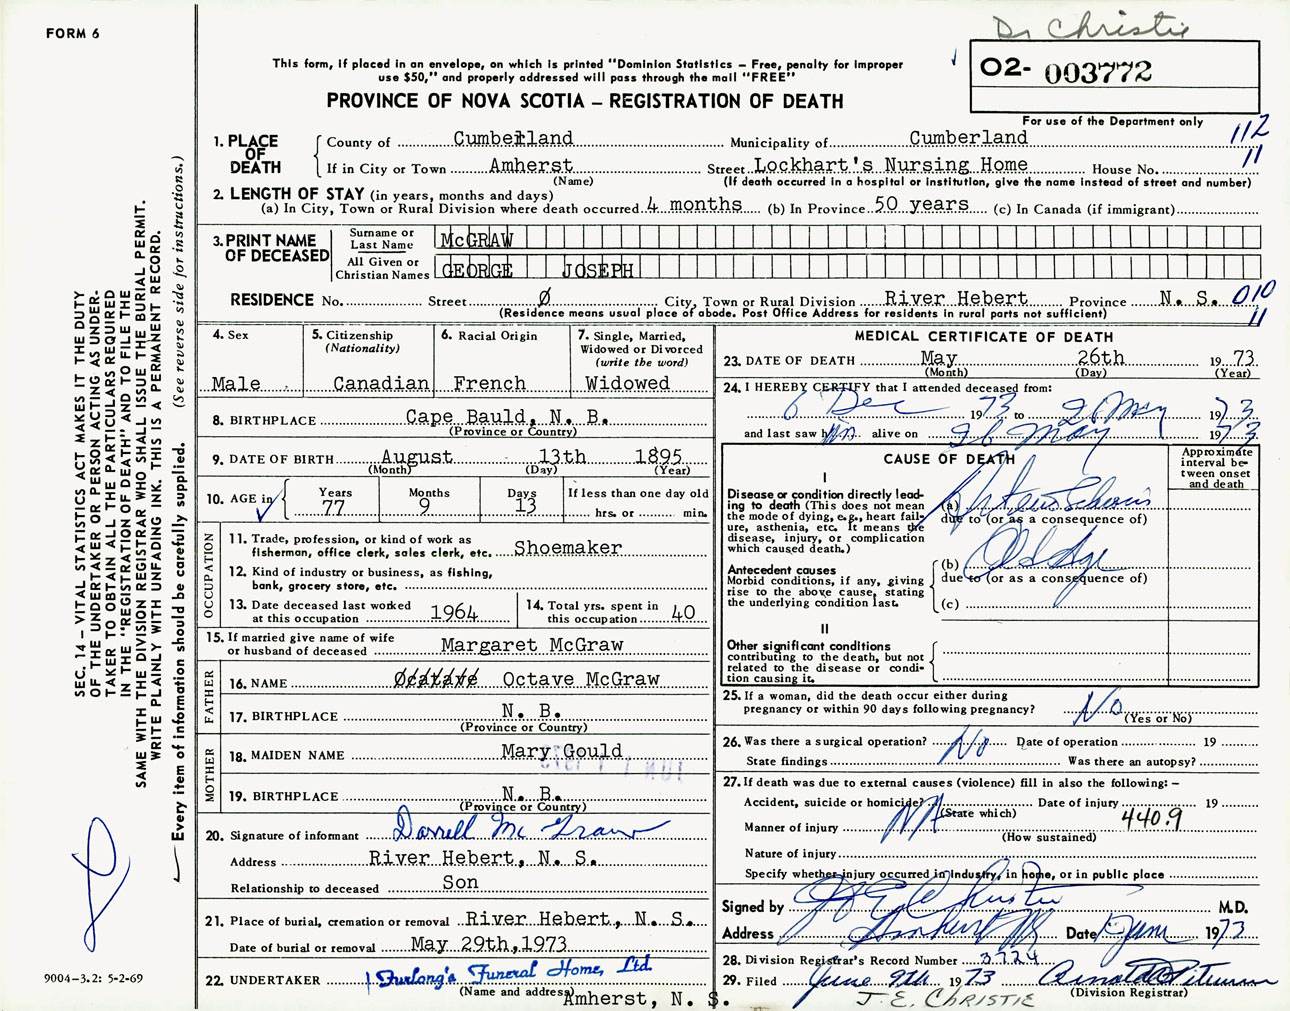 FORM 6
Dr Christie
This form, if placed in an envelope, on which is printed "Dominion Statistics – Free, penalty for improper
use $50," and properly addressed will pass through the mail "FREE"
02- 003772
PROVINCE OF NOVA SCOTIA – REGISTRATION OF DEATH
For use of the Department only
112
11
1. PLACE OF DEATH
County of Cumberland Municipality of Cumberland
If in City or Town Amherst Street Lockhart's Nursing Home House No.
(Name) (If death occurred in a hospital or institution, give the name instead of street and number)
2. LENGTH OF STAY (in years, months and days)
(a) In City, Town or Rural Division where death occurred 4 months (b) In Province 50 years (c) In Canada (if immigrant)
3. PRINT NAME OF DECEASED
Surname or Last Name McGRAW
All Given or Christian Names GEORGE JOSEPH
RESIDENCE No. Street Ø City, Town or Rural Division River Hebert Province N. S. 010
11
(Residence means usual place of abode. Post Office Address for residents in rural parts not sufficient)
4. Sex
Male
5. Citizenship
(Nationality)
Canadian
6. Racial Origin
French
7. Single, Married,
Widowed or Divorced
(write the word)
Widowed
8. BIRTHPLACE Cape Bauld, N. B.
(Province or Country)
9. DATE OF BIRTH August 13th 1895
(Month) (Day) (Year)
10. AGE in
Years Months Days If less than one day old
77 9 13 hrs. or min.
OCCUPATION
11. Trade, profession, or kind of work as
fisherman, office clerk, sales clerk, etc. Shoemaker
12. Kind of industry or business, as fishing,
bank, grocery store, etc.
13. Date deceased last worked
at this occupation 1964
14. Total yrs. spent in
this occupation 40
15. If married give name of wife
or husband of deceased Margaret McGraw
FATHER
16. NAME Octave McGraw
17. BIRTHPLACE N. B.
(Province or Country)
MOTHER
18. MAIDEN NAME Mary Gould
19. BIRTHPLACE N. B.
(Province or Country)
20. Signature of informant Darrell Mc Graw
Address River Hebert, N. S.
Relationship to deceased Son
21. Place of burial, cremation or removal River Hebert, N. S.
Date of burial or removal May 29th,1973
22. UNDERTAKER Furlong's Funeral Home, Ltd.
(Name and address)
Amherst, N. S.
MEDICAL CERTIFICATE OF DEATH
23. DATE OF DEATH May 26th 1973
(Month) (Day) (Year)
24. I HEREBY CERTIFY that I attended deceased from:
6 Dec 1973 to 26 May 1973
and last saw him alive on 26 May 1973
CAUSE OF DEATH
Approximate
interval be-
tween onset
and death
I
Disease or condition directly lead-
ing to death (This does not mean
the mode of dying, e.g., heart fail-
ure, asthenia, etc. It means the
disease, injury, or complication
which caused death.)
(a)
due to (or as a consequence of)
Antecedent causes
Morbid conditions, if any, giving
rise to the above cause, stating
the underlying condition last.
(b) Old Age
due to (or as a consequence of)
(c)
II
Other significant conditions
contributing to the death, but not
related to the disease or condi-
tion causing it.
25. If a woman, did the death occur either during
pregnancy or within 90 days following pregnancy? No
(Yes or No)
26. Was there a surgical operation? No Date of operation 19
State findings Was there an autopsy?
27. If death was due to external causes (violence) fill in also the following: –
Accident, suicide or homicide? NA Date of injury 19
(State which)
Manner of injury 440.9
(How sustained)
Nature of injury
Specify whether injury occurred in industry, in home, or in public place
Signed by J E Christie M.D.
Address Amherst NS Date June 1973
28. Division Registrar's Record Number 3724
29. Filed June 9th 1973
(Division Registrar)
J. E. CHRISTIE
SEC. 14 – VITAL STATISTICS ACT MAKES IT THE DUTY
OF THE UNDERTAKER OR PERSON ACTING AS UNDER-
TAKER TO OBTAIN ALL THE PARTICULARS REQUIRED
IN THE "REGISTRATION OF DEATH" AND TO FILE THE
SAME WITH THE DIVISION REGISTRAR WHO SHALL ISSUE THE BURIAL PERMIT.
WRITE PLAINLY WITH UNFADING INK. THIS IS A PERMANENT RECORD.
(See reverse side for instructions.)
Every item of information should be carefully supplied.
9004–3.2: 5-2-69